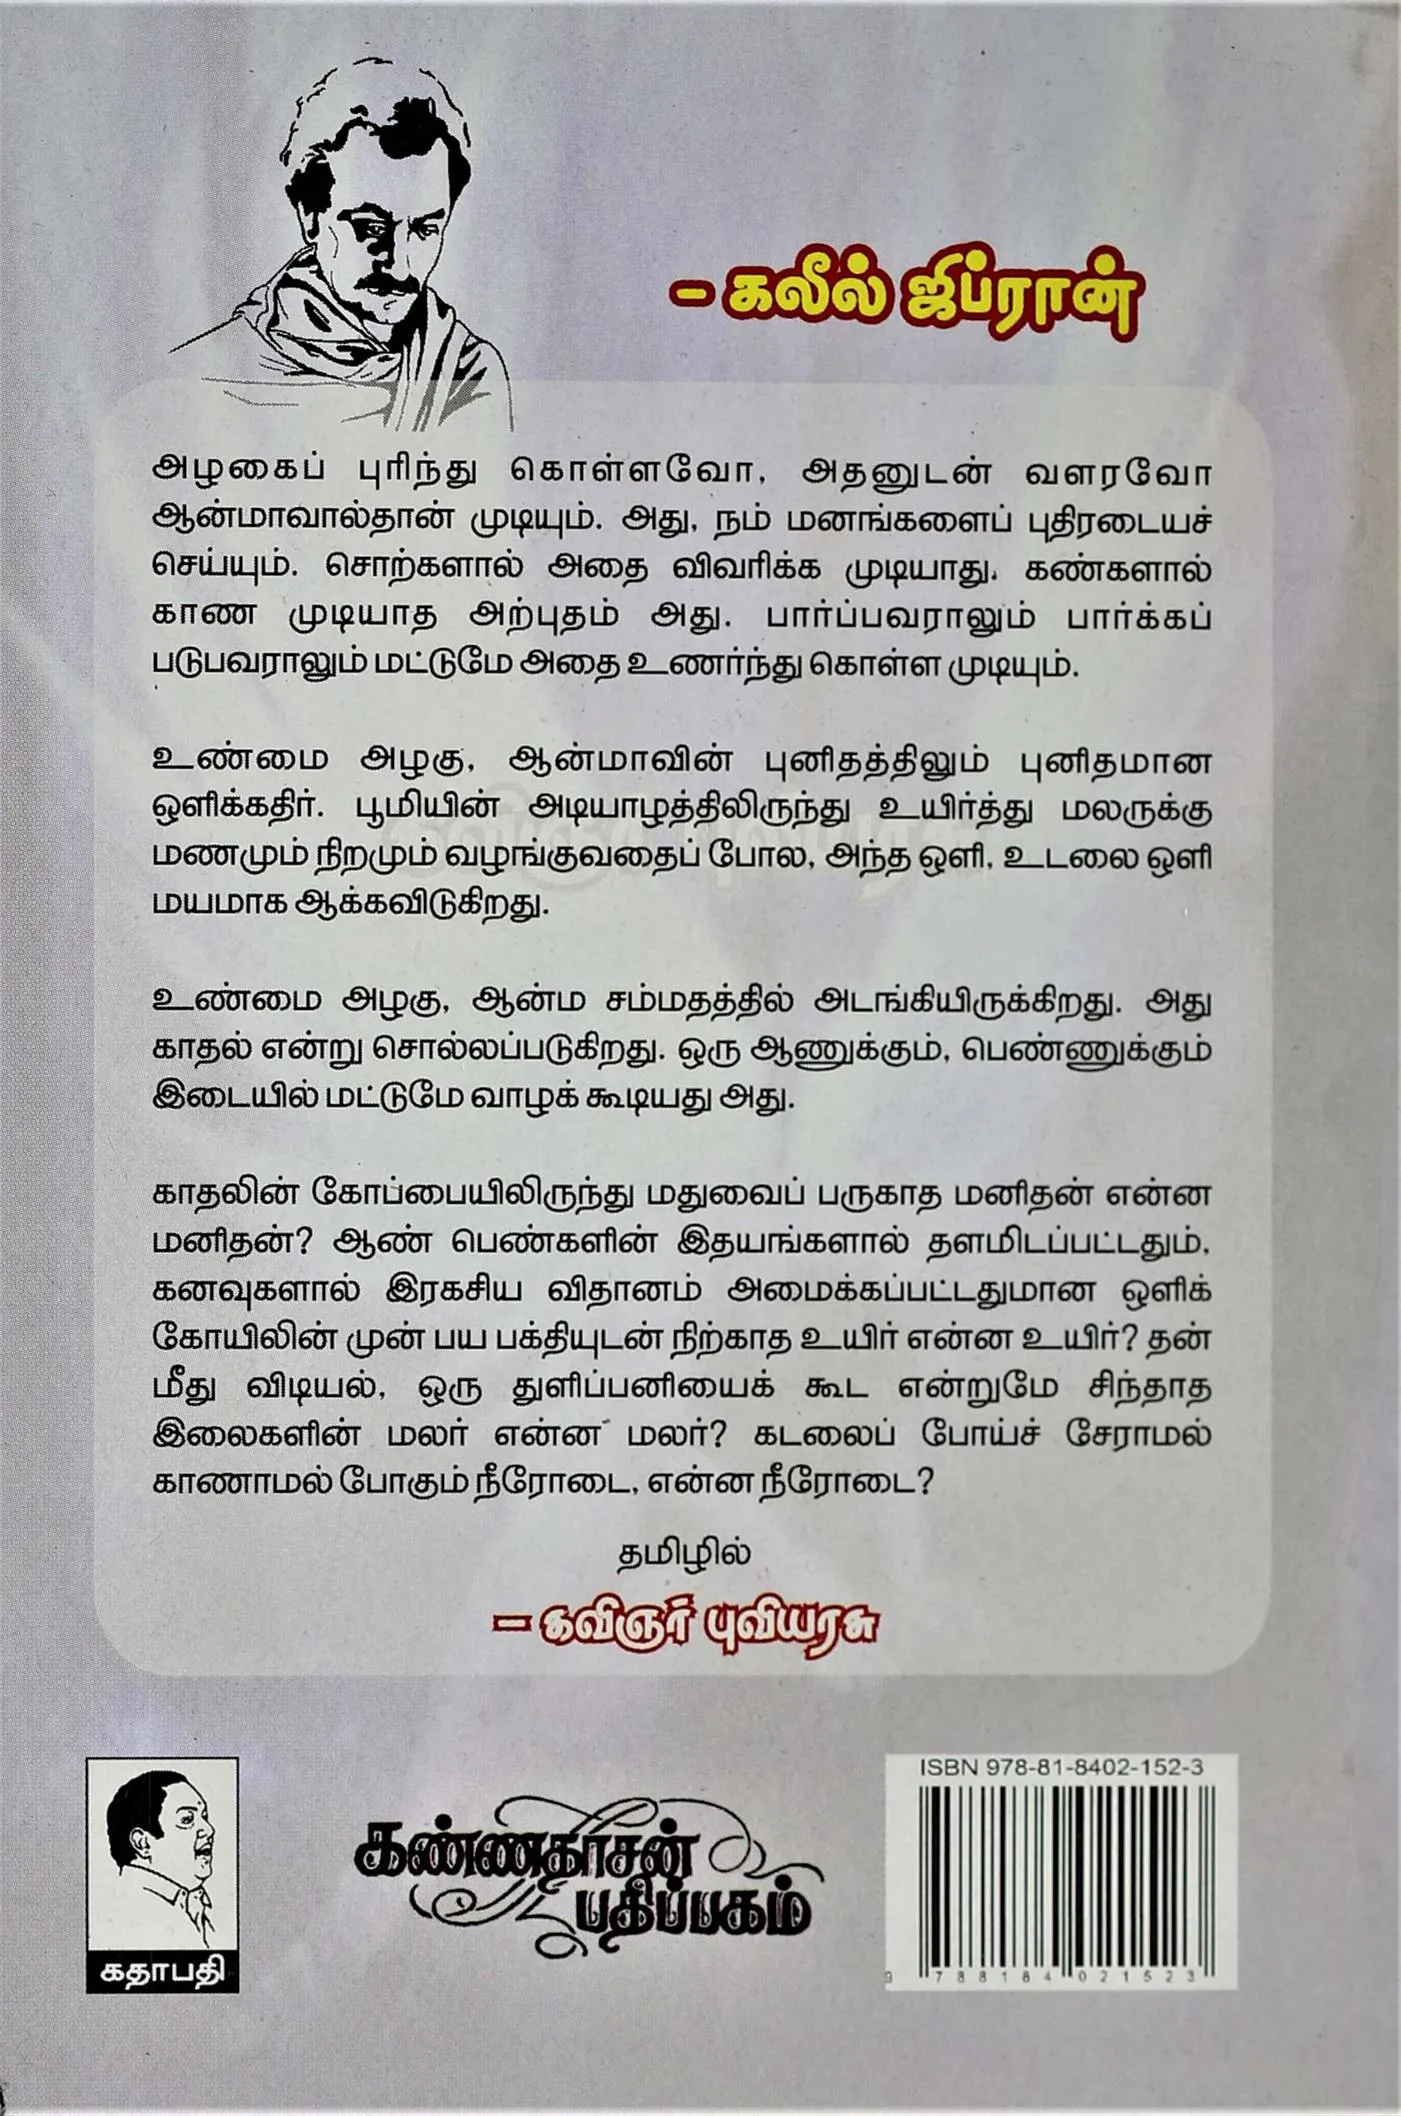 - கலீல் ஜிப்ரான்
அழகைப் புரிந்து கொள்ளவோ, அதனுடன் வளரவோ
ஆன்மாவால்தான் முடியும். அது, நம் மனங்களைப் புதிரடையச்
செய்யும். சொற்களால் அதை விவரிக்க முடியாது. கண்களால்
காண முடியாத அற்புதம் அது. பார்ப்பவராலும் பார்க்கப்
படுபவராலும் மட்டுமே அதை உணர்ந்து கொள்ள முடியும்.
உண்மை அழகு, ஆன்மாவின் புனிதத்திலும் புனிதமான
ஒளிக்கதிர். பூமியின் அடியாழத்திலிருந்து உயிர்த்து மலருக்கு
மணமும் நிறமும் வழங்குவதைப் போல, அந்த ஒளி, உடலை ஒளி
மயமாக ஆக்கவிடுகிறது.
உண்மை அழகு, ஆன்ம சம்மதத்தில் அடங்கியிருக்கிறது. அது
காதல் என்று சொல்லப்படுகிறது. ஒரு ஆணுக்கும், பெண்ணுக்கும்
இடையில் மட்டுமே வாழக் கூடியது அது.
காதலின் கோப்பையிலிருந்து மதுவைப் பருகாத மனிதன் என்ன
மனிதன்? ஆண் பெண்களின் இதயங்களால் தளமிடப்பட்டதும்,
கனவுகளால் இரகசிய விதானம் அமைக்கப்பட்டதுமான ஒளிக்
கோயிலின் முன் பய பக்தியுடன் நிற்காத உயிர் என்ன உயிர்? தன்
மீது விடியல், ஒரு துளிப்பனியைக் கூட என்றுமே சிந்தாத
இலைகளின் மலர் என்ன மலர்? கடலைப் போய்ச் சேராமல்
காணாமல் போகும் நீரோடை, என்ன நீரோடை?
தமிழில்
- கவிஞர் புவியரசு
கதாபதி
கண்ணதாசன்
பதிப்பகம்
ISBN 978-81-8402-152-3
9 788184 021523